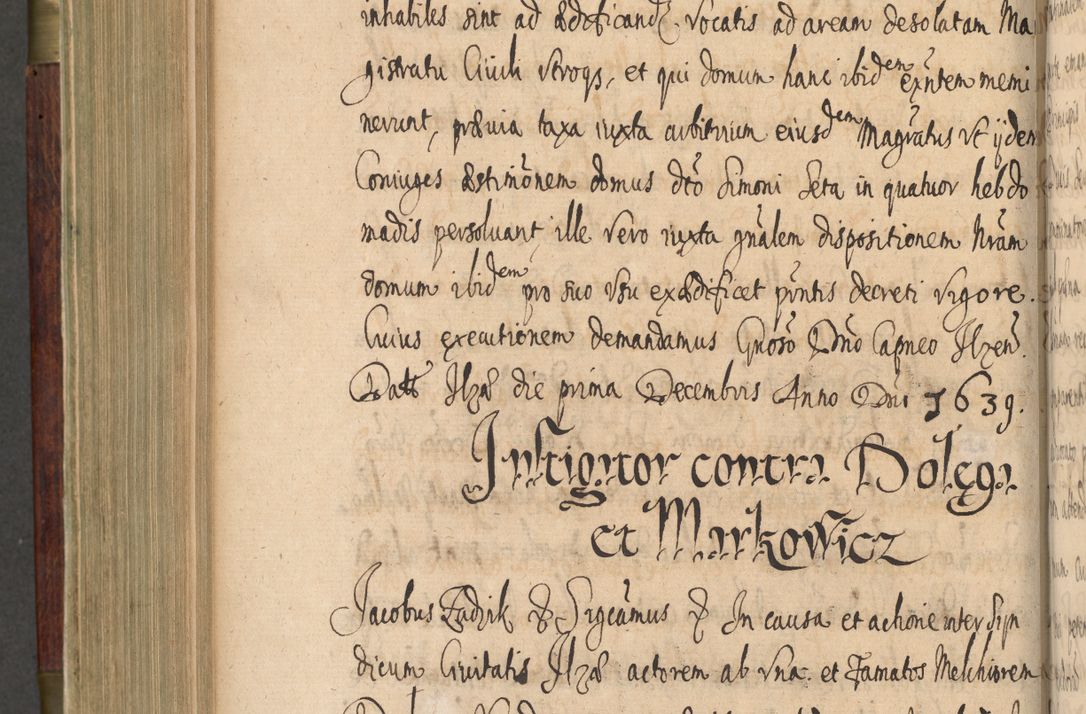 inhabiles sint ad ædificand vocatis ad aream desolatam Ma
gistratu Ciuili vtroqs, et qui domum hanc ibidem exñtem memi
nerunt, præuia taxa iuxta arbitrium eiusdem Magratus vt ijdem
Coniuges æstimõnem domus dtõ Simoni Seta in quatuor hebdo
madis persoluant, ille vero iuxta gnãlem dispositionem Nrãm
domum ibidem pro suo vsu exædificet pñtis decreti vigore.
Cuius executionem demandamus Gnõso Dñō Capneo Ilzeñ.
Datt Ilzæ die prima Decembris Anno Dñi 1639.
Instigator contra Dolęga
et Markowicz
Jacobus Zadzik & Sigcãmus & In causa et actione inter Syn
dicum Ciuitatis Ilzæ actorem ab vna et Famatos Melchiorem